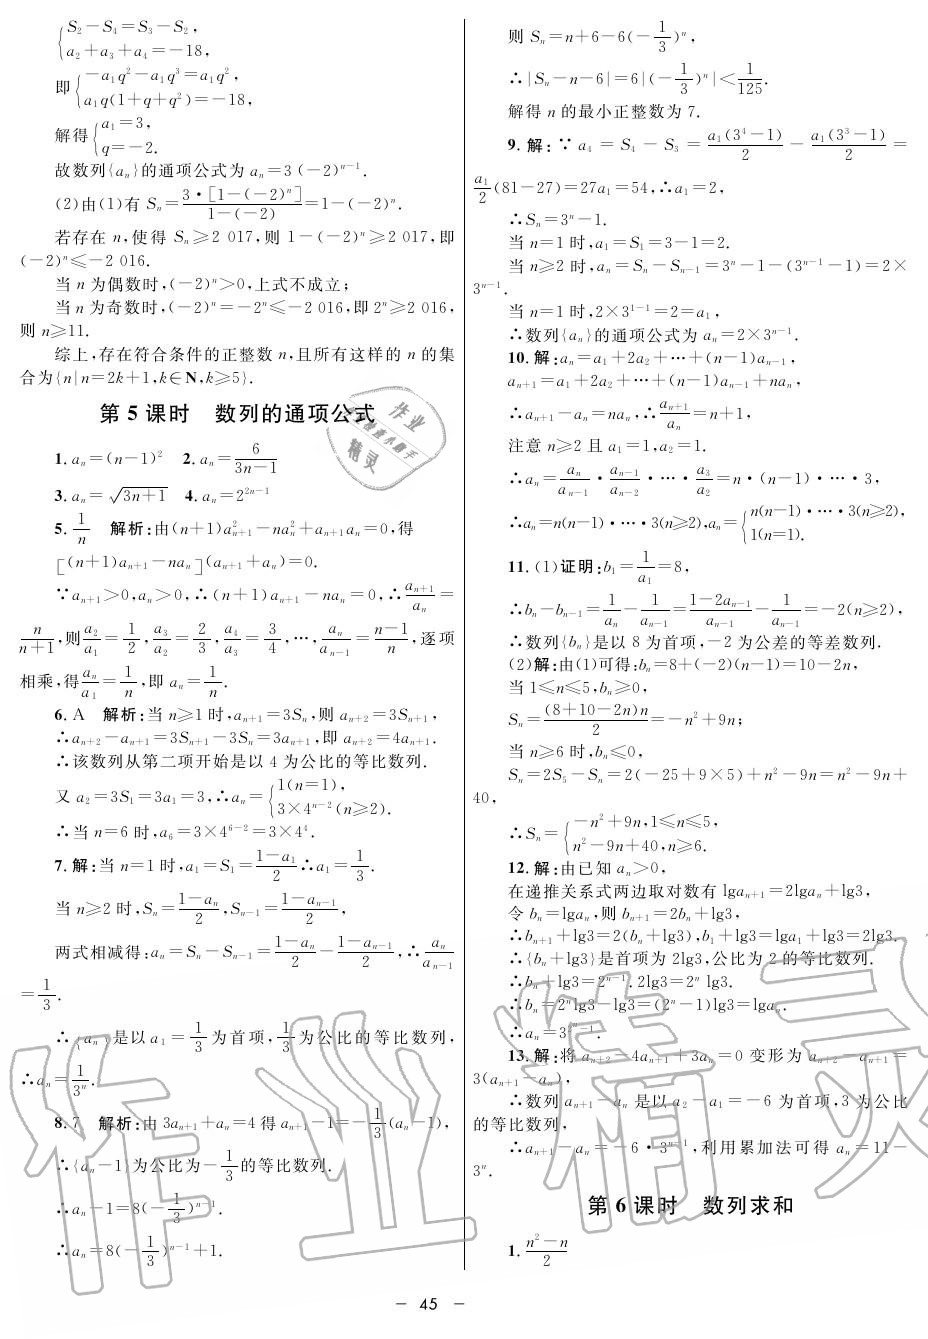 {S₂－S₄＝S₃－S₂，
a₂＋a₃＋a₄＝－18，
即{－a₁q²－a₁q³＝a₁q²，
a₁q(1＋q＋q²)＝－18，
解得{a₁＝3，
q＝－2.
故数列{aₙ}的通项公式为 aₙ＝3 (－2)ⁿ⁻¹.
(2)由(1)有 Sₙ＝3·[1－(－2)ⁿ]/1－(－2)＝1－(－2)ⁿ.
若存在 n,使得 Sₙ≥2 017,则 1－(－2)ⁿ≥2 017,即
(－2)ⁿ≤－2 016.
当 n 为偶数时,(－2)ⁿ>0,上式不成立；
当 n 为奇数时,(－2)ⁿ＝－2ⁿ≤－2 016,即 2ⁿ≥2 016,
则 n≥11.
综上,存在符合条件的正整数 n,且所有这样的 n 的集
合为{n|n＝2k＋1,k∈N,k≥5}.
第 5 课时　数列的通项公式
1. aₙ＝(n－1)²　2. aₙ＝6/(3n－1)
3. aₙ＝√(3n＋1)　4. aₙ＝2²ⁿ⁻¹
5. 1/n　解析:由(n＋1)a²ₙ₊₁－naₙ²＋aₙ₊₁aₙ＝0,得
[(n＋1)aₙ₊₁－naₙ](aₙ₊₁＋aₙ)＝0.
∵aₙ₊₁>0,aₙ>0,∴(n＋1)aₙ₊₁－naₙ＝0,∴aₙ₊₁/aₙ＝
n/(n＋1),则a₂/a₁＝1/2,a₃/a₂＝2/3,a₄/a₃＝3/4,…,aₙ/aₙ₋₁＝(n－1)/n,逐项
相乘,得aₙ/a₁＝1/n,即 aₙ＝1/n.
6. A　解析:当 n≥1 时,aₙ₊₁＝3Sₙ,则 aₙ₊₂＝3Sₙ₊₁,
∴aₙ₊₂－aₙ₊₁＝3Sₙ₊₁－3Sₙ＝3aₙ₊₁,即 aₙ₊₂＝4aₙ₊₁.
∴该数列从第二项开始是以 4 为公比的等比数列.
又 a₂＝3S₁＝3a₁＝3,∴aₙ＝{1(n＝1),
3×4ⁿ⁻²(n≥2).
∴当 n＝6 时,a₆＝3×4⁶⁻²＝3×4⁴.
7. 解:当 n＝1 时,a₁＝S₁＝(1－a₁)/2∴a₁＝1/3.
当 n≥2 时,Sₙ＝(1－aₙ)/2,Sₙ₋₁＝(1－aₙ₋₁)/2,
两式相减得:aₙ＝Sₙ－Sₙ₋₁＝(1－aₙ)/2－(1－aₙ₋₁)/2,∴aₙ/aₙ₋₁
＝1/3.
∴{aₙ}是以 a₁＝1/3 为首项,1/3 为公比的等比数列,
∴aₙ＝1/3ⁿ.
8. 7　解析:由 3aₙ₊₁＋aₙ＝4 得 aₙ₊₁－1＝－1/3(aₙ－1),
∴{aₙ－1}为公比为－1/3的等比数列.
∴aₙ－1＝8(－1/3)ⁿ⁻¹.
∴aₙ＝8(－1/3)ⁿ⁻¹＋1.
则 Sₙ＝n＋6－6(－1/3)ⁿ,
∴|Sₙ－n－6|＝6|(－1/3)ⁿ|<1/125.
解得 n 的最小正整数为 7.
9. 解:∵a₄＝S₄－S₃＝a₁(3⁴－1)/2－a₁(3³－1)/2＝
a₁/2(81－27)＝27a₁＝54,∴a₁＝2,
∴Sₙ＝3ⁿ－1.
当 n＝1 时,a₁＝S₁＝3－1＝2.
当 n≥2 时,aₙ＝Sₙ－Sₙ₋₁＝3ⁿ－1－(3ⁿ⁻¹－1)＝2×
3ⁿ⁻¹.
当 n＝1 时,2×3¹⁻¹＝2＝a₁,
∴数列{aₙ}的通项公式为 aₙ＝2×3ⁿ⁻¹.
10. 解:aₙ＝a₁＋2a₂＋…＋(n－1)aₙ₋₁,
aₙ₊₁＝a₁＋2a₂＋…＋(n－1)aₙ₋₁＋naₙ,
∴aₙ₊₁－aₙ＝naₙ,∴aₙ₊₁/aₙ＝n＋1,
注意 n≥2 且 a₁＝1,a₂＝1.
∴aₙ＝aₙ/aₙ₋₁·aₙ₋₁/aₙ₋₂·…·a₃/a₂＝n·(n－1)·…·3,
∴aₙ＝n(n－1)·…·3(n≥2),aₙ＝{n(n－1)·…·3(n≥2),
1(n＝1).
11. (1)证明:b₁＝1/a₁＝8,
∴bₙ－bₙ₋₁＝1/aₙ－1/aₙ₋₁＝(1－2aₙ₋₁)/aₙ₋₁－1/aₙ₋₁＝－2(n≥2),
∴数列{bₙ}是以 8 为首项,－2 为公差的等差数列.
(2)解:由(1)可得:bₙ＝8＋(－2)(n－1)＝10－2n,
当 1≤n≤5,bₙ≥0,
Sₙ＝(8＋10－2n)n/2＝－n²＋9n;
当 n≥6 时,bₙ≤0,
Sₙ＝2S₅－Sₙ＝2(－25＋9×5)＋n²－9n＝n²－9n＋
40,
∴Sₙ＝{－n²＋9n,1≤n≤5,
n²－9n＋40,n≥6.
12. 解:由已知 aₙ>0,
在递推关系式两边取对数有 lgaₙ₊₁＝2lgaₙ＋lg3,
令 bₙ＝lgaₙ,则 bₙ₊₁＝2bₙ＋lg3,
∴bₙ₊₁＋lg3＝2(bₙ＋lg3),b₁＋lg3＝lga₁＋lg3＝2lg3.
∴{bₙ＋lg3}是首项为 2lg3,公比为 2 的等比数列.
∴bₙ＋lg3＝2ⁿ⁻¹.2lg3＝2ⁿ lg3.
∴bₙ＝2ⁿlg3－lg3＝(2ⁿ－1)lg3＝lgaₙ.
∴aₙ＝3^(2ⁿ－1).
13. 解:将 aₙ₊₂－4aₙ₊₁＋3aₙ＝0 变形为 aₙ₊₂－aₙ₊₁＝
3(aₙ₊₁－aₙ),
∴数列 aₙ₊₁－aₙ 是以 a₂－a₁＝－6 为首项,3 为公比
的等比数列,
∴aₙ₊₁－aₙ＝－6·3ⁿ⁻¹,利用累加法可得 aₙ＝11－
3ⁿ.
第 6 课时　数列求和
1. (n²－n)/2
－ 45 －
作业
精灵
作业精灵